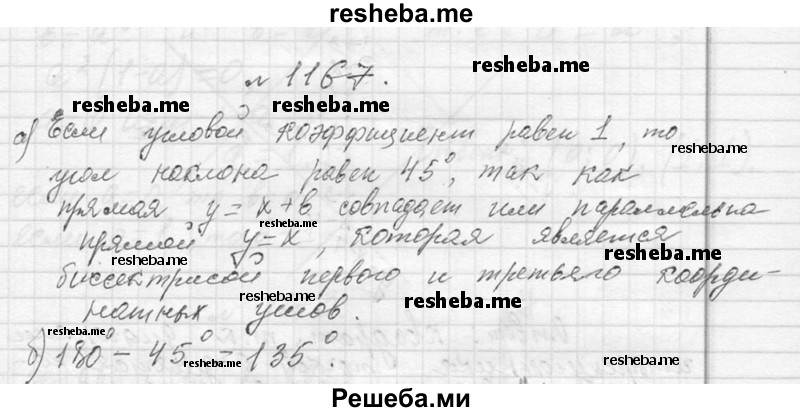 resheba.me
№ 1167.
resheba.me
resheba.me resheba.me
а) Если угловой коэффициент равен 1, то
resheba.me
угол наклона равен 45°, так как
прямая y = x + b совпадает или параллельна
resheba.me
прямой y = x, которая является
resheba.me resheba.me
биссектрисой первого и третьего коорди-
resheba.me
натных углов.
resheba.me
б) 180° - 45° - 135°.
resheba.me resheba.me
Решеба.ми